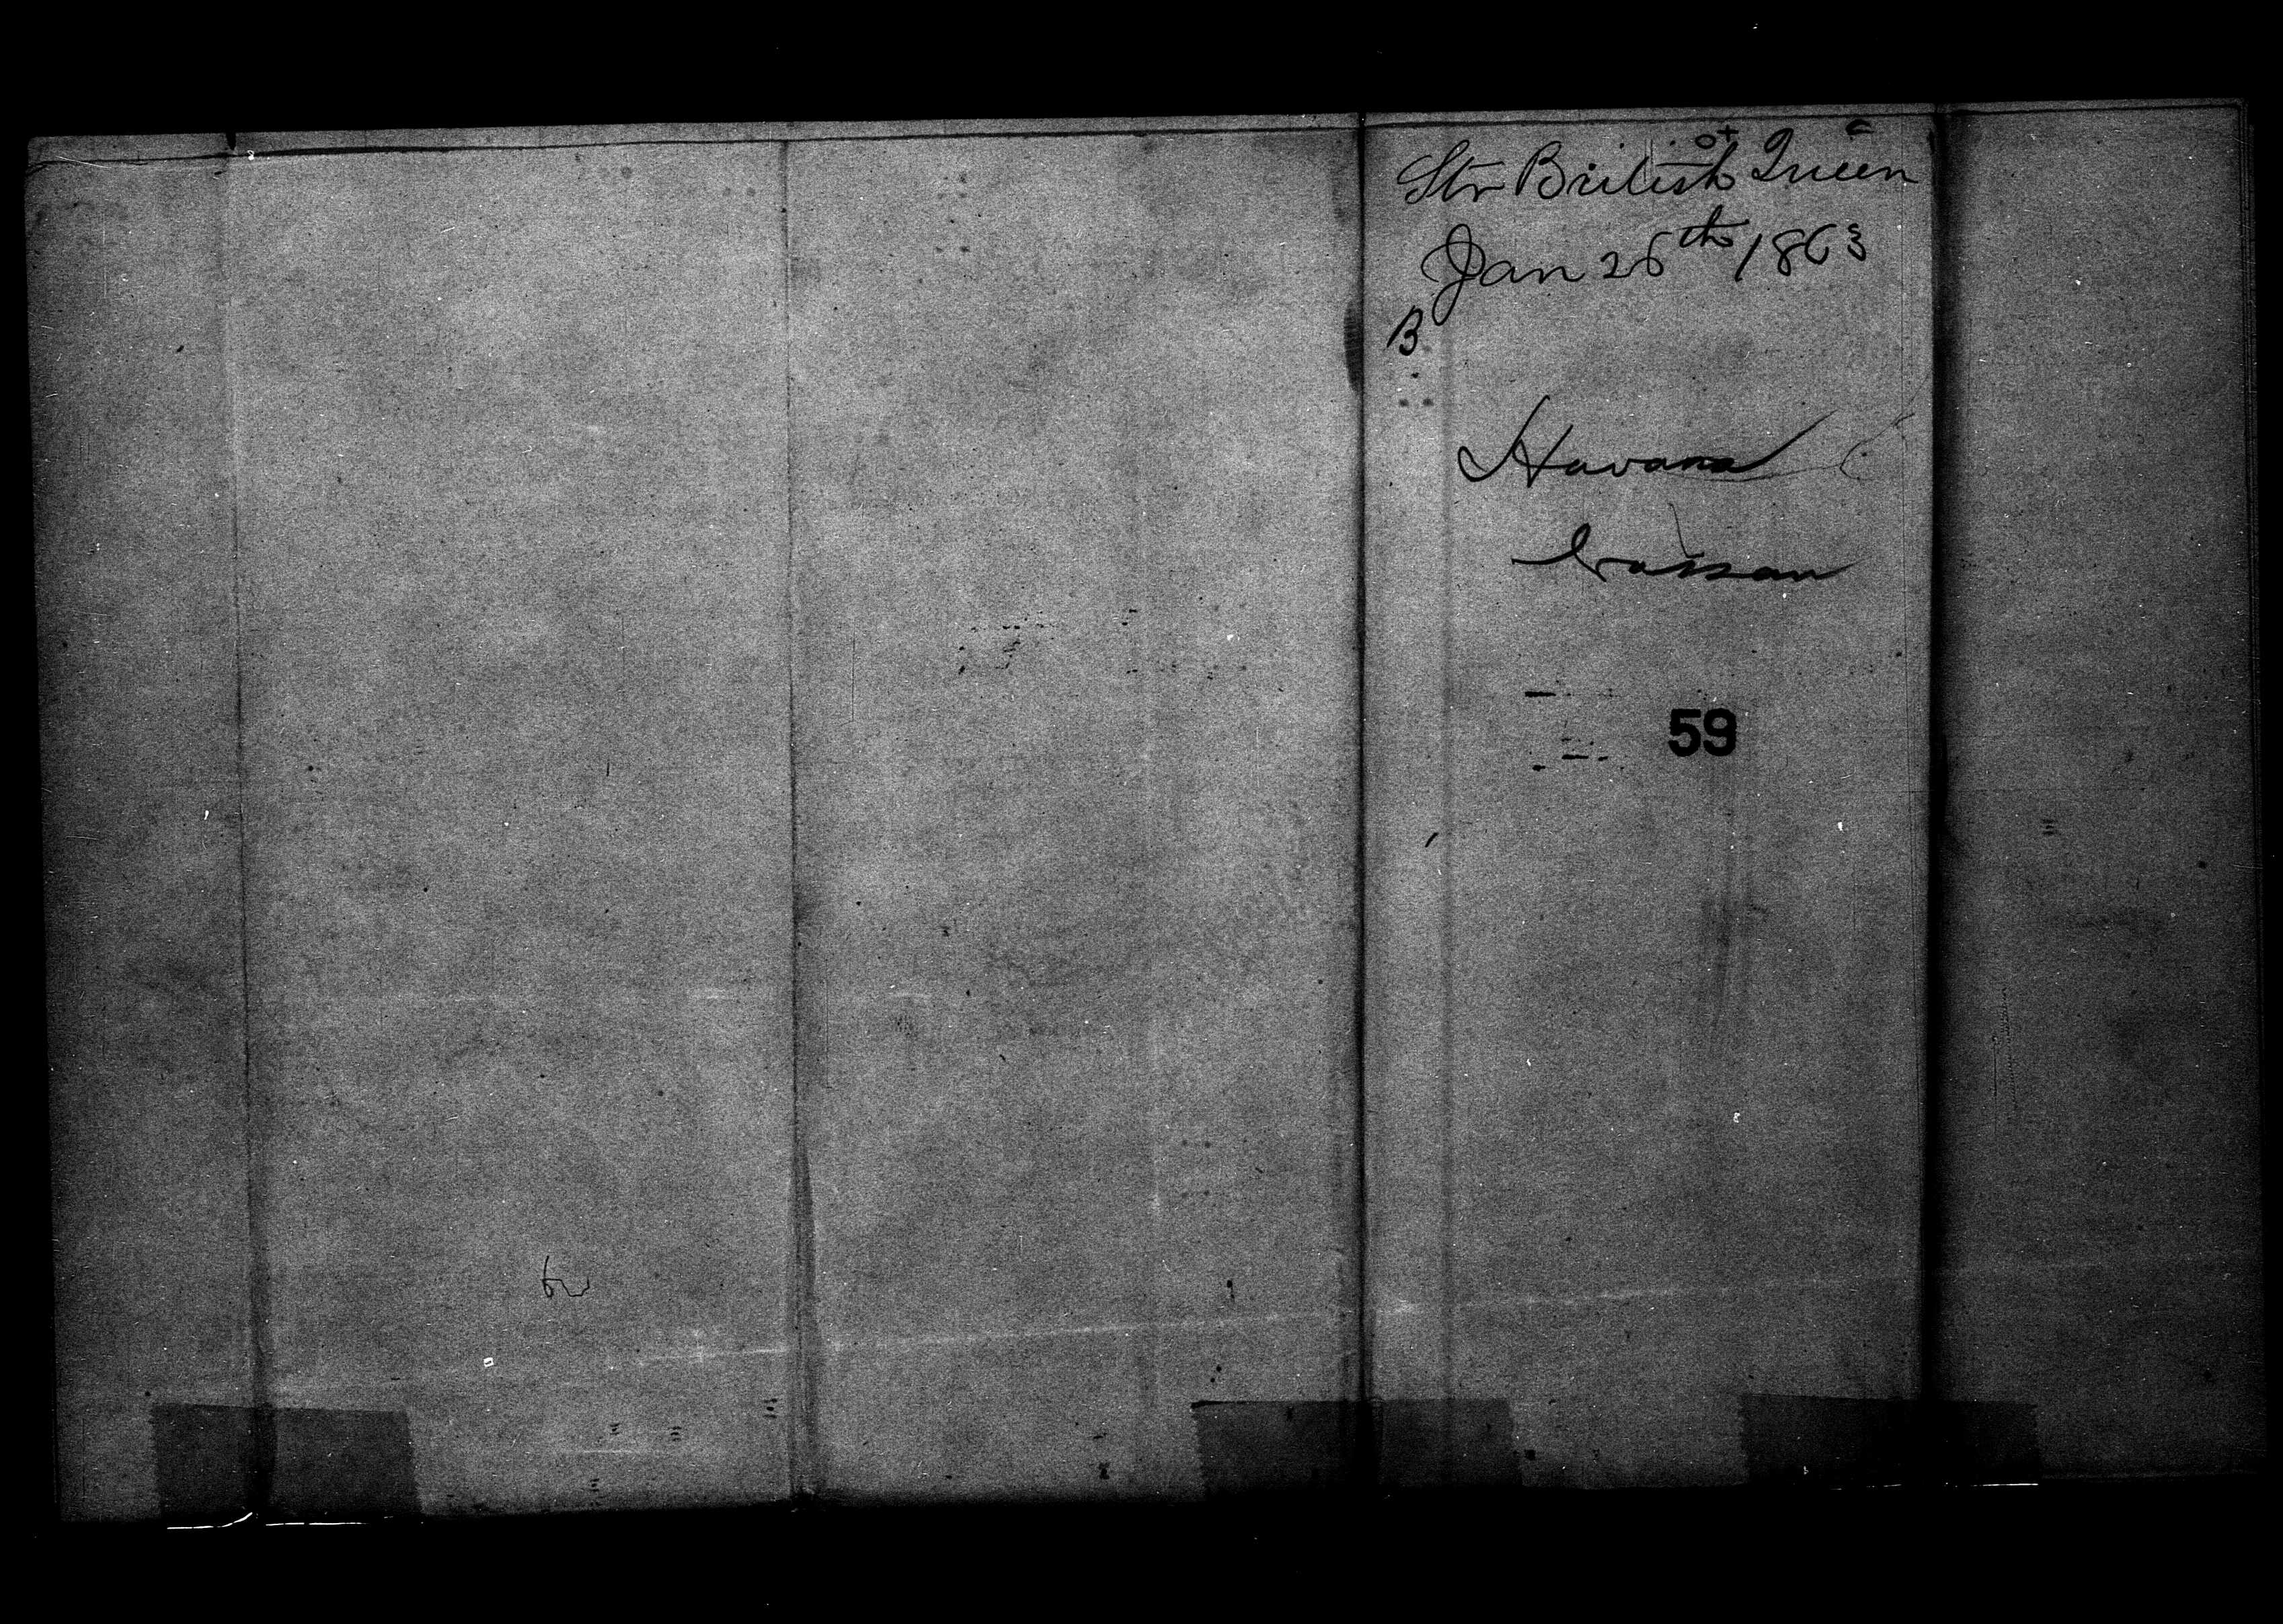 Str British Queen
Jan 26th 1863
B
Havana
Nassau
59